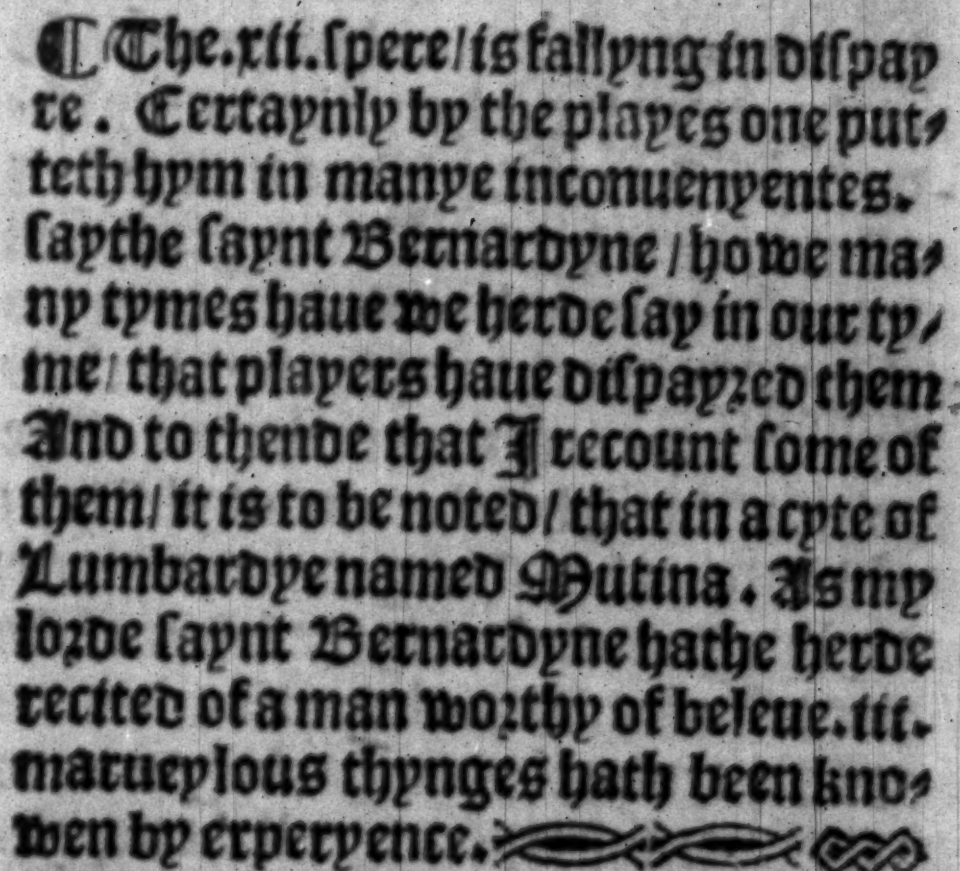 ¶ The.xii.ſpere/is fallyng in diſpay
re. Certaynly by the playes one put⸗
teth hym in manye inconuenyentes.
ſaythe ſaynt Bernardyne/howe ma⸗
ny tymes haue we herde ſay in our ty⸗
me/that players haue diſpayꝛed them
And to thende that I recount ſome of
them/it is to be noted/that in a cyte of
Lumbardye named Mutina. As my
loꝛde ſaynt Bernardyne hathe herde
recited of a man woꝛthy of beleue.iii.
marueylous thynges hath been kno⸗
wen by experyence.